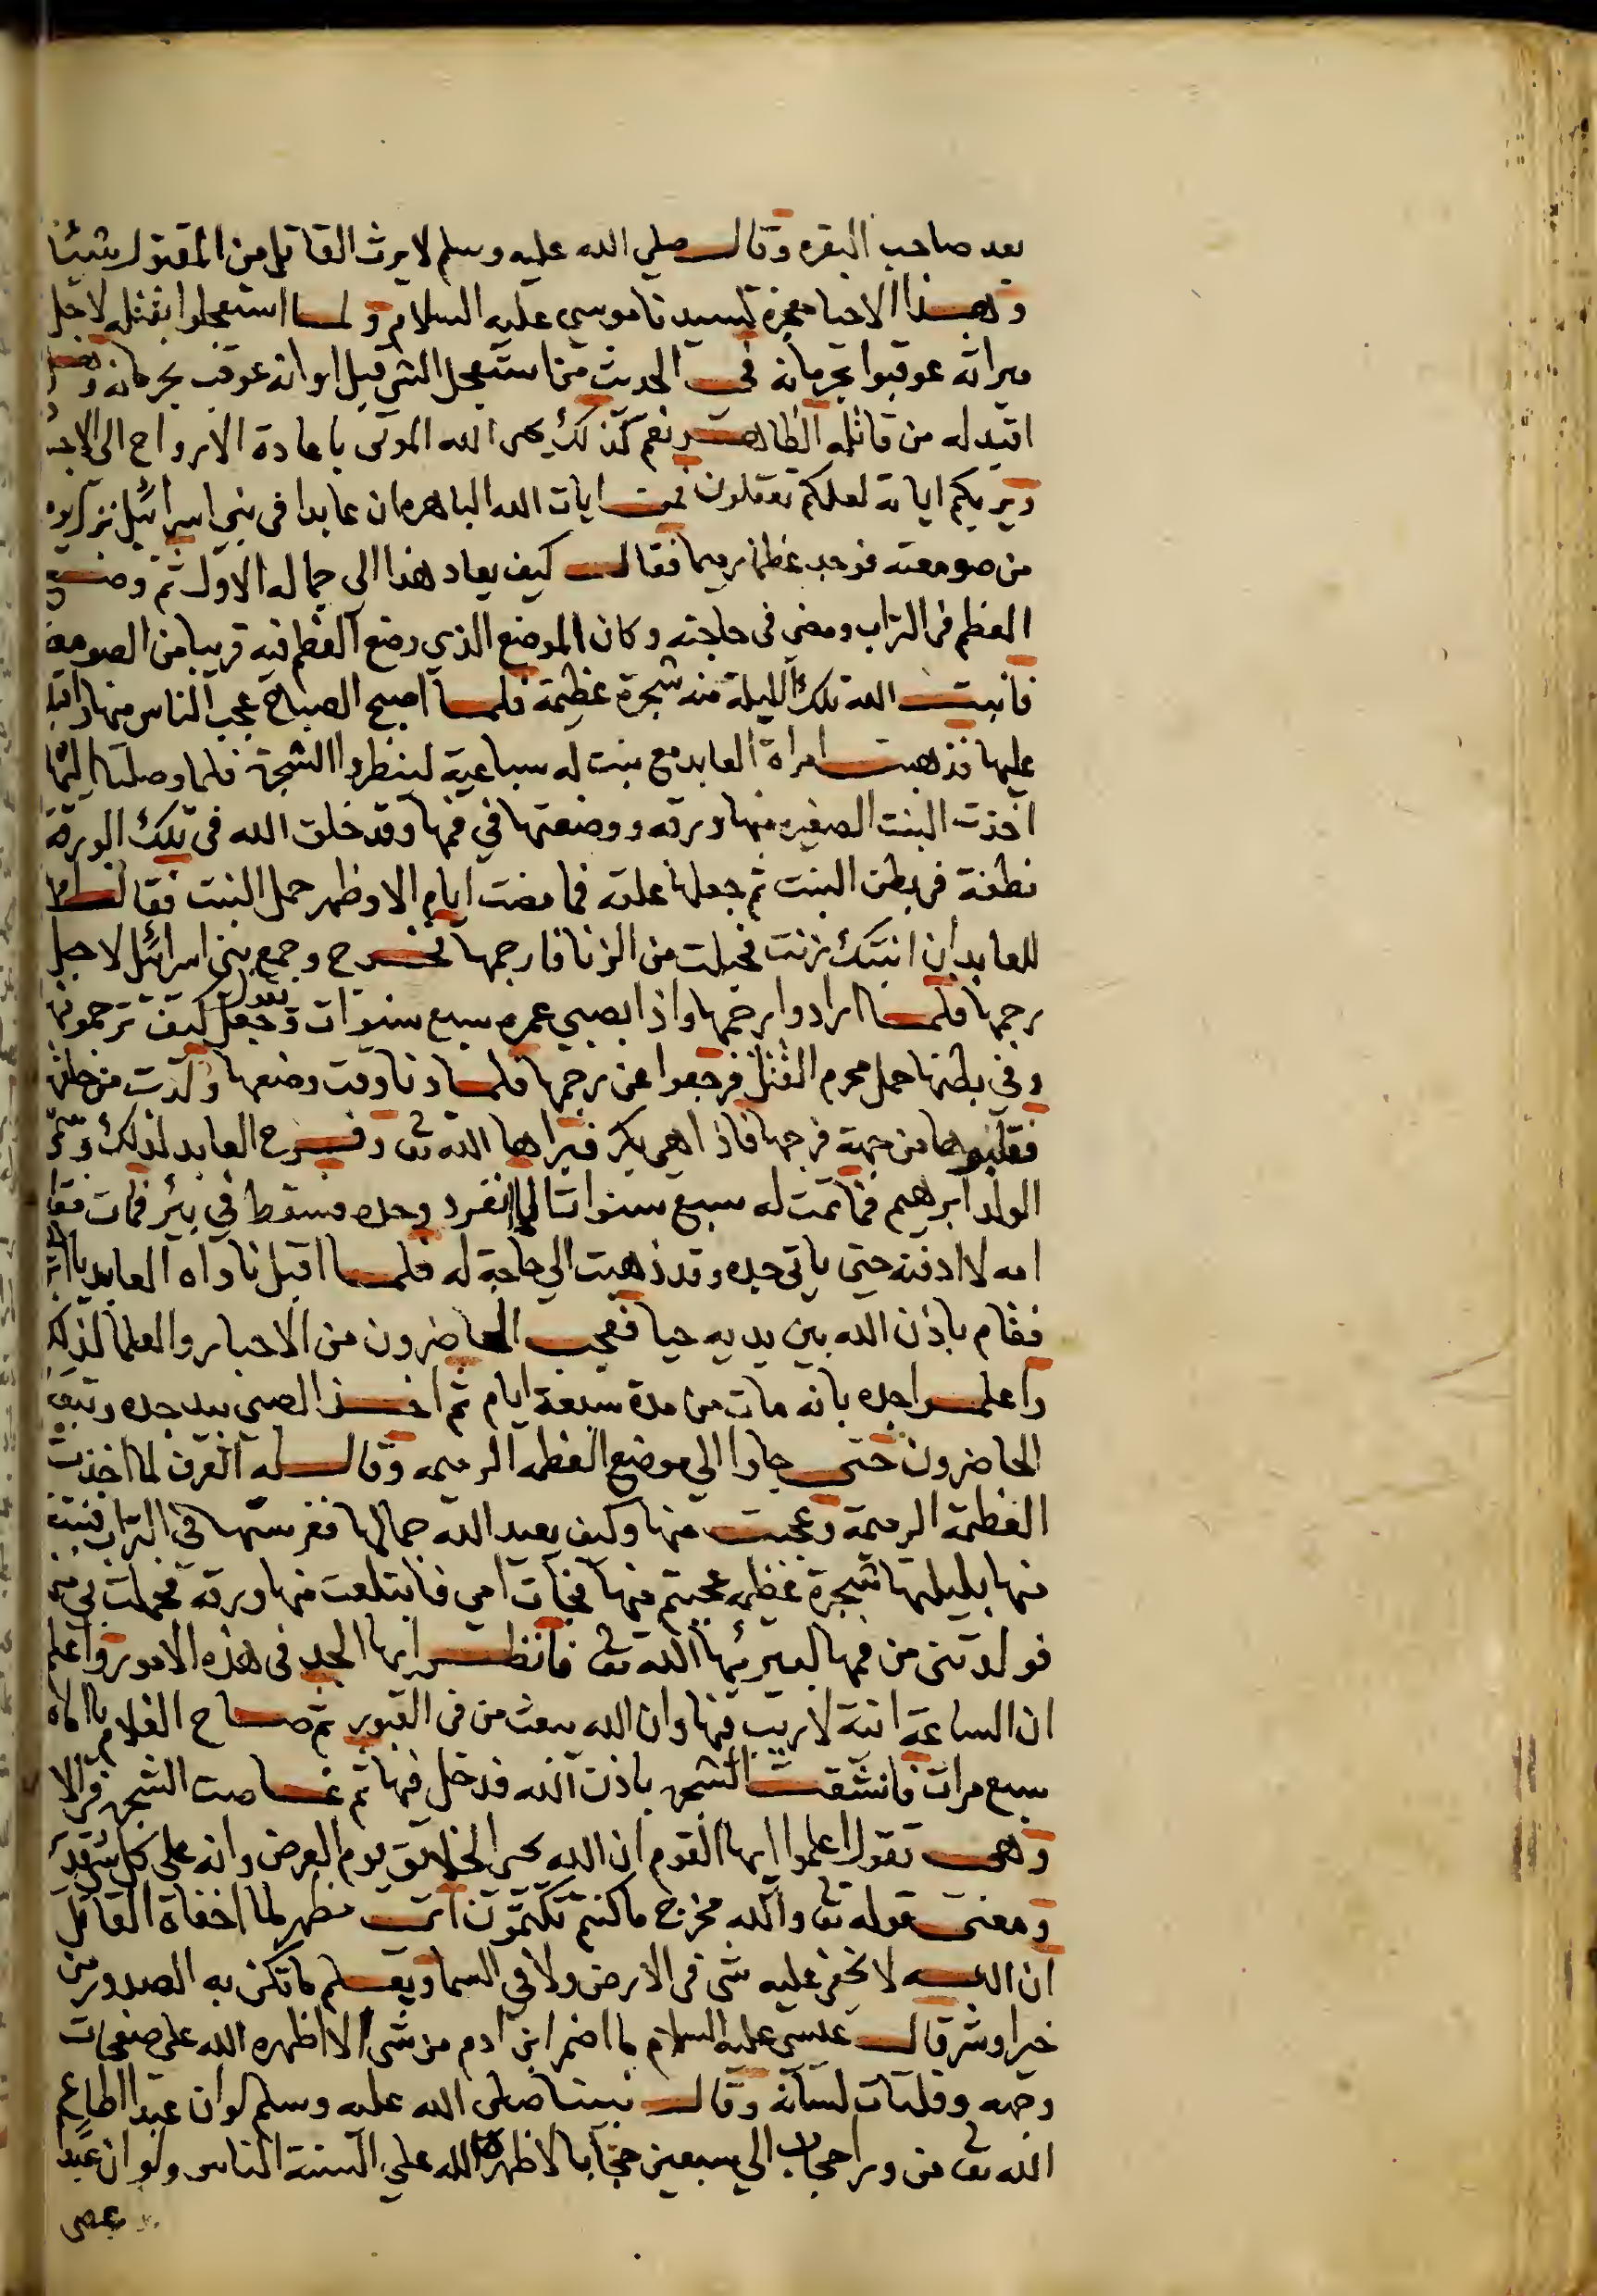 بعد صاحب البقره وقال صلي الله عليه وسلم لا يرث القاتل من المقتول شيئا
وهذا الاحيا معجزة لسيدنا موسي عليه السلام ولما استعجلوا بقتله لاجل
ميراثه عوقبوا بحرمانه في الحديث من استعجل الشي قبل اوانه عوقب بحرمانه
اقيد له من قاتله الظاهر نعم كذلك يحي الله الموتى باعادة الارواح الي
ويريكم اياته لعلكم تعقلون ايات الله الباهره ان عابدا في بني اسرائيل نزل يوم
من صومعته فوجد عظما رميما فقال كيف يعاد هذا الى جماله الاول ثم وضع
العظم في التراب ومضي في حاجته وكان الموضع الذي وضع العظم فيه قريبا من الصومعة
فانبت الله تلك الليلة منه شجرة عظيمة فلما اصبح الصباح عجب الناس منها
عليها فذهبت امراة العابد مع بنت له سباعية لينظروا الشجرة فلما وصلتا اليها
اخذت البنت الصغيره منها ورقه ووضعتها في فمها وقد خلق الله في تلك الورقة
نطفة في بطن البنت ثم جعلها علقه فما مضت ايام الا وظهر حمل البنت
للعابد ان ابنتك زنت فحبلت من الزنا فارجمها فخرج وجمع بني اسرائيل لاجل
رجمها فلما ارادوا رجمها واذا بصبي عمره سبع سنوات وجعل يقول كيف ترجموها
وفي بطنها حمل محرم القتل فرجعوا عن رجمها فلما دنا وقت وضعها ولدت من
فقلبوها من جهة فرجها فاذا هي بكر فبراها الله تعا وفرح العابد لذلك وسمى
الولد ابرهيم فما تمت له سبع سنوات انفرد وحده فسقط في بئر فمات
امه لا ادفنه حتى ياتي جده وقد ذهبت الي حاجة له فلما اقبل ناداه العابد
فقام باذن الله بين يديه حيا فعجب الحاضرون من الاحبار والعلما لذلك
واعلموا جده بانه مات من مدة سبعة ايام ثم اخذ الصبي بيد جده وتبعه
الحاضرون حتى جاوا الي موضع العظمه الرميمه وقال له اتعرف لما اخذت
العظمة الرميمة وعجبت منها وكيف يعيد الله جمالها فغرستها في التراب فنبت
منها بليلتها شجرة عظيمه عجبتم منها فجات امي فابتلعت منها ورقه فحملت بي
فولدتني من فمها ليبرئها الله تعا فانظر ايها الجد في هذه الامور واعلم
ان الساعة اتية لا ريب فيها وان الله يبعث من في القبور ثم صاح الغلام
سبع مرات فانشقت الشجره باذن الله فدخل فيها ثم غاصت الشجره في الا
وهي تقول اعلموا ايها القوم ان الله يحي الخلائق يوم العرض وانه على كل شي قدير
ومعنى قوله تعا والله مخرج ما كنتم تكتمون اي مظهر لما اخفاه القاتل
ان الله لا يخفى عليه شي في الارض ولا في السما ويعلم ما تكن به الصدور من
خيرا وشر قال عيسى عليه السلام ما اضمر ابن ادم من شي الا اظهره الله على صفحات
وجهه وفلتات لسانه وقال نبينا صلى الله عليه وسلم لو ان عبدا اطاع
الله تعا من ورا حجاب الي سبعين حجابا لاظهره الله علي السنة الناس ولو ان عبدا
عصى